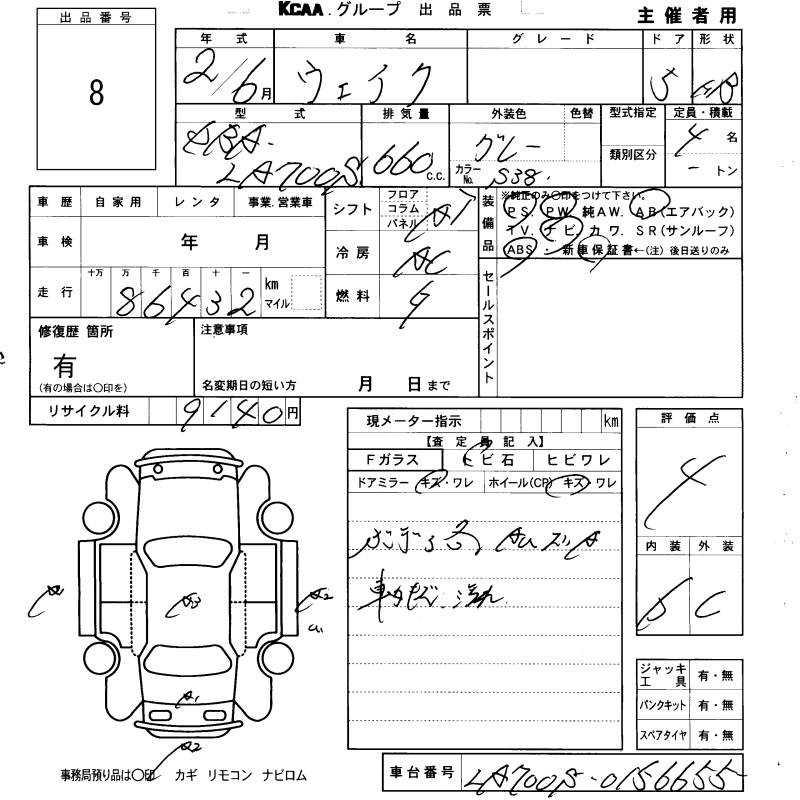 KCAA.グループ 出品票
主催者用
出品番号
8
年式 車名 グレード ドア 形状
2/6月 ウェイク 5 HB
型式 排気量 外装色 色替 型式指定 定員・積載
DBA-
LA700S 660 C.C. グレー カラーNo. S38 類別区分 4名
ートン
車歴 自家用 レンタ 事業.営業車
シフト フロア コラム パネル AT
装備品 ※純正のみ○印をつけて下さい。
PS. PW. 純AW. AB(エアバック)
TV. ナビ. カワ. SR(サンルーフ)
ABS ・ 新車保証書←(注)後日送りのみ
車検 年 月
冷房 AC
走行 十万 万 千 百 十 一 km マイル
86432
燃料
セールスポイント
修復歴 箇所
有
(有の場合は○印を)
注意事項
名変期日の短い方 月 日まで
リサイクル料 9140円
現メーター指示 km
【査定員記入】
Fガラス トビ石 ヒビワレ
ドアミラー キズ・ワレ ホイール(CP) キズ・ワレ
評価点
4
内装 外装
C
A A3 A2
A1
A2
ジャッキ工具 有・無
パンクキット 有・無
スペアタイヤ 有・無
事務局預り品は○印 カギ リモコン ナビロム
車台番号 LA700S-0156655